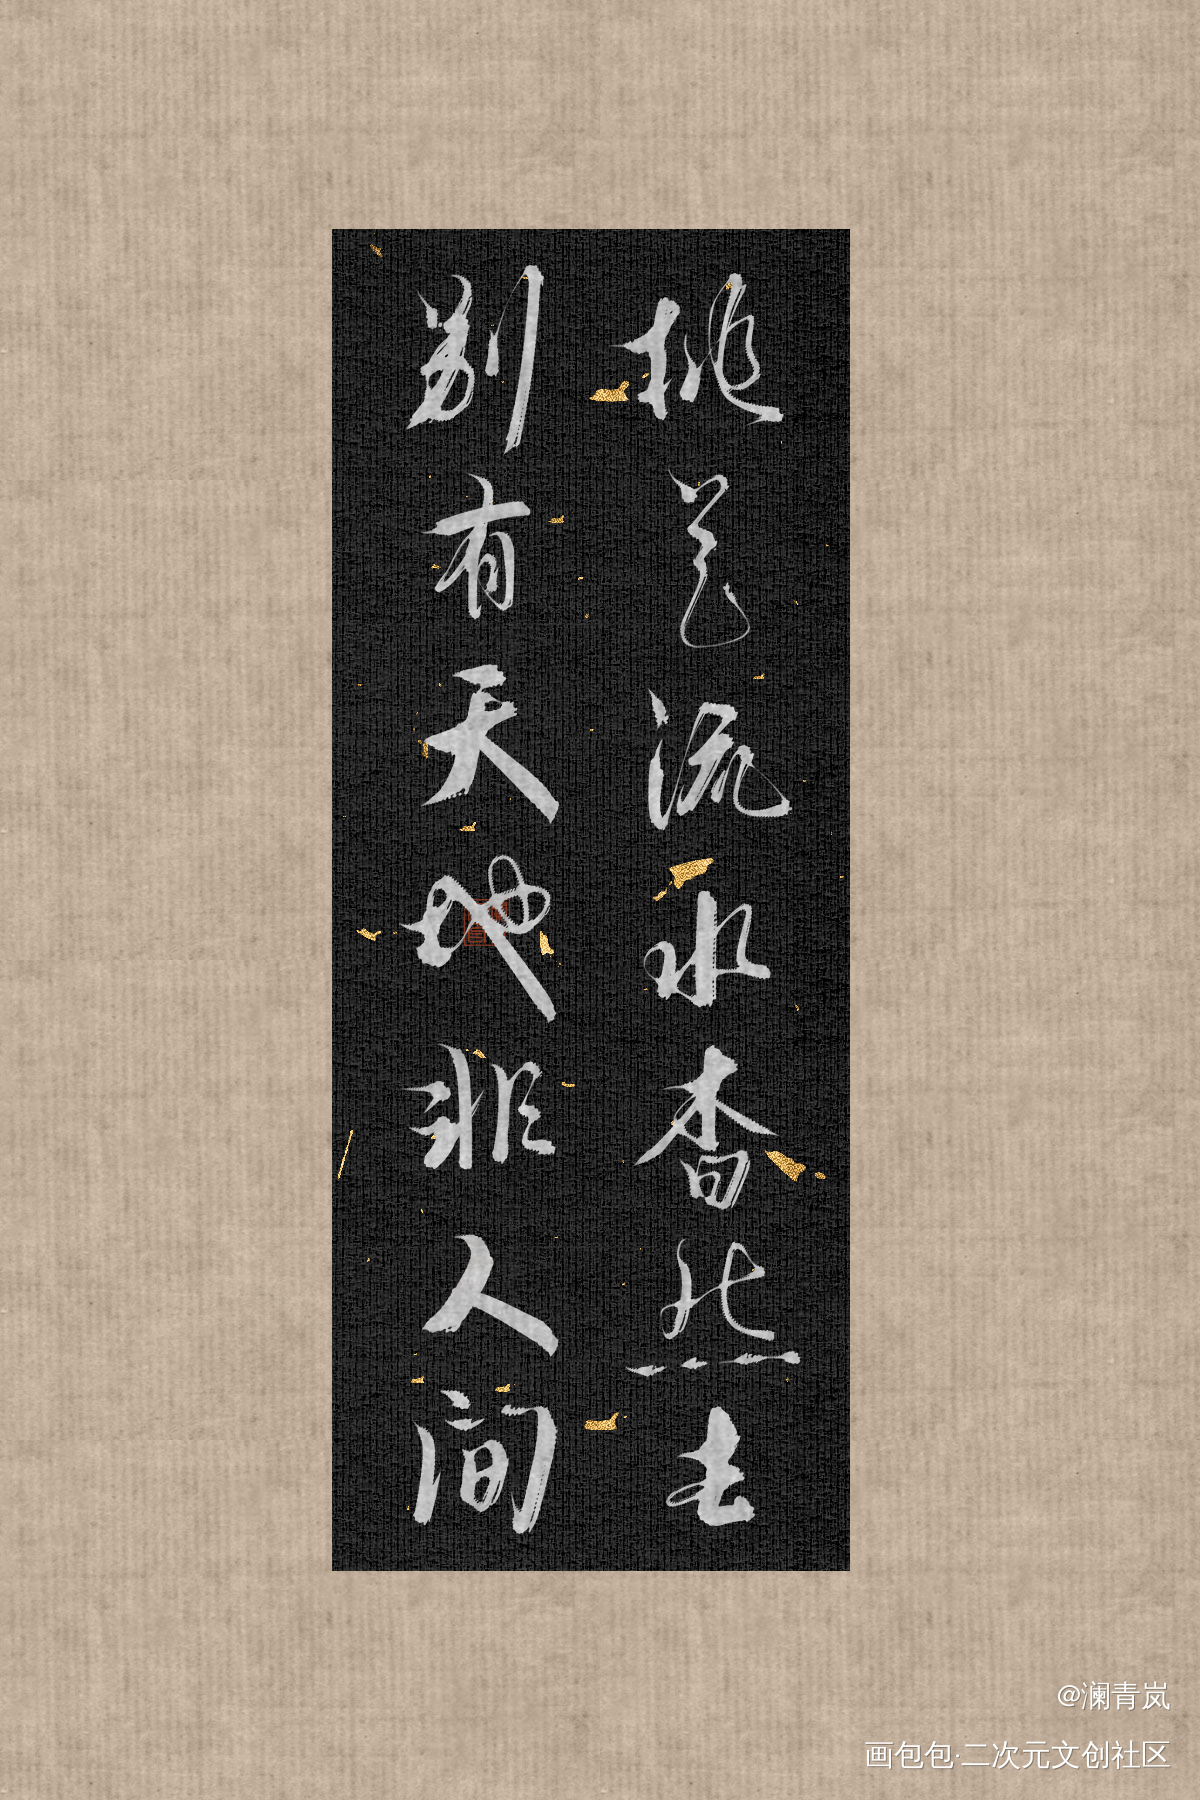 桃花流水杳然去
别有天地非人间
@澜青岚
画包包·二次元文创社区